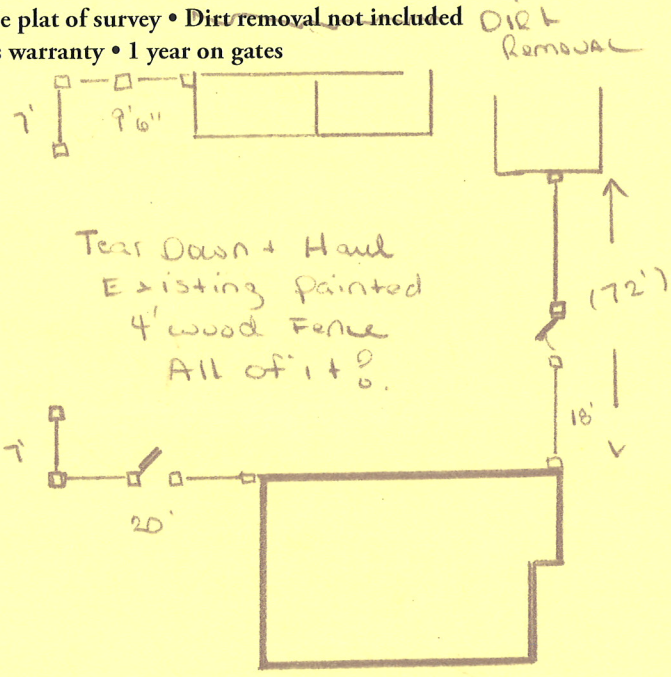 e plat of survey • Dirt removal not included
s warranty • 1 year on gates
DIRt
REMOVAL
7'
9'6"
Tear Down + Haul
Existing Painted
4' wood Fence
All of it?
(72')
18'
7'
20'